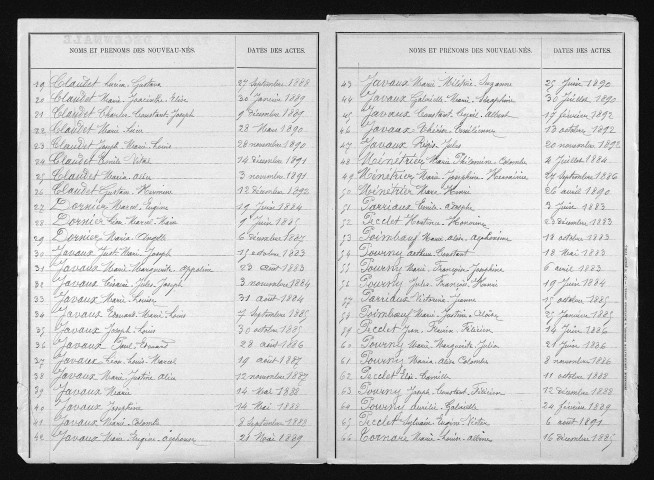 NOMS ET PRENOMS DES NOUVEAU-NÉS. DATES DES ACTES.
19 Claudet Lucien Gustave 27 Septembre 1888
20 Claudet Marie 30 Janvier 1889
21 Claudet Charles Constant Joseph 9 décembre 1889
22 Claudet Marie 28 Mars 1890
23 Claudet Joseph Marie Louis 28 novembre 1890
24 Claudet Emile Vital 14 décembre 1891
25 Claudet Maria 3 novembre 1891
26 Claudet Gustave 12 décembre 1892
27 Dornier Marcel Eugène 19 Juin 1884
28 Dornier Marcel 9 Juin 1885
29 Dornier Maria Angèle 6 décembre 1887
30 Javaux Just Henri Joseph 15 octobre 1883
31 Javaux Maria Marguerite 23 août 1883
32 Javaux Césaire Jules Joseph 3 novembre 1884
33 Javaux Marie Louise 31 août 1884
34 Javaux Edouard Marie Louis 7 septembre 1885
35 Javaux Joseph Louis 30 octobre 1885
36 Javaux Paul Edouard 28 août 1886
37 Javaux Léon Louis Marcel 19 août 1887
38 Javaux Marie Justine 12 novembre 1887
39 Javaux Marie 14 Mai 1888
40 Javaux Joséphine 14 Mai 1888
41 Javaux Marie Colombe 8 Septembre 1888
42 Javaux Marie Eugène Alphonse 28 Mai 1889
NOMS ET PRENOMS DES NOUVEAU-NÉS. DATES DES ACTES.
43 Javaux Marie Suzanne 25 Juin 1890
44 Javaux Gabrielle Marie Séraphine 30 Juillet 1890
45 Javaux Constant Albert 17 février 1892
46 Javaux Emilienne 13 octobre 1892
47 Javaux Régis Jules 20 novembre 1892
48 Ménétrier Marie Philomène Colombe 4 Juillet 1884
49 Ménétrier Marie Joséphine 27 Septembre 1886
50 Ménétrier Marc Henri 26 avril 1890
51 Parriaux Emile Joseph 3 Juin 1883
52 Péclet Honorine 23 décembre 1883
53 Poimbœuf Marie Alphonsine 18 octobre 1883
54 Pourny Arthur Constant 18 Mai 1883
55 Pourny Marie Françoise Joséphine 8 avril 1883
56 Pourny Jules François Henri 19 Juin 1884
57 Parriaux Victorine Jeanne 15 octobre 1885
58 Poimbœuf Marie Justine 25 Janvier 1885
59 Péclet Jean 14 Juin 1886
60 Pourny Marie Marguerite Julia 21 Juin 1886
61 Pourny Maria Colombe 8 novembre 1886
62 Péclet Camille 11 octobre 1888
63 Pourny Joseph Constant 12 décembre 1888
64 Pourny Aurélie Gabrielle 24 février 1889
65 Péclet Sylvain Eugène Victor 6 août 1891
66 Tornare Marie Louise 16 décembre 1885